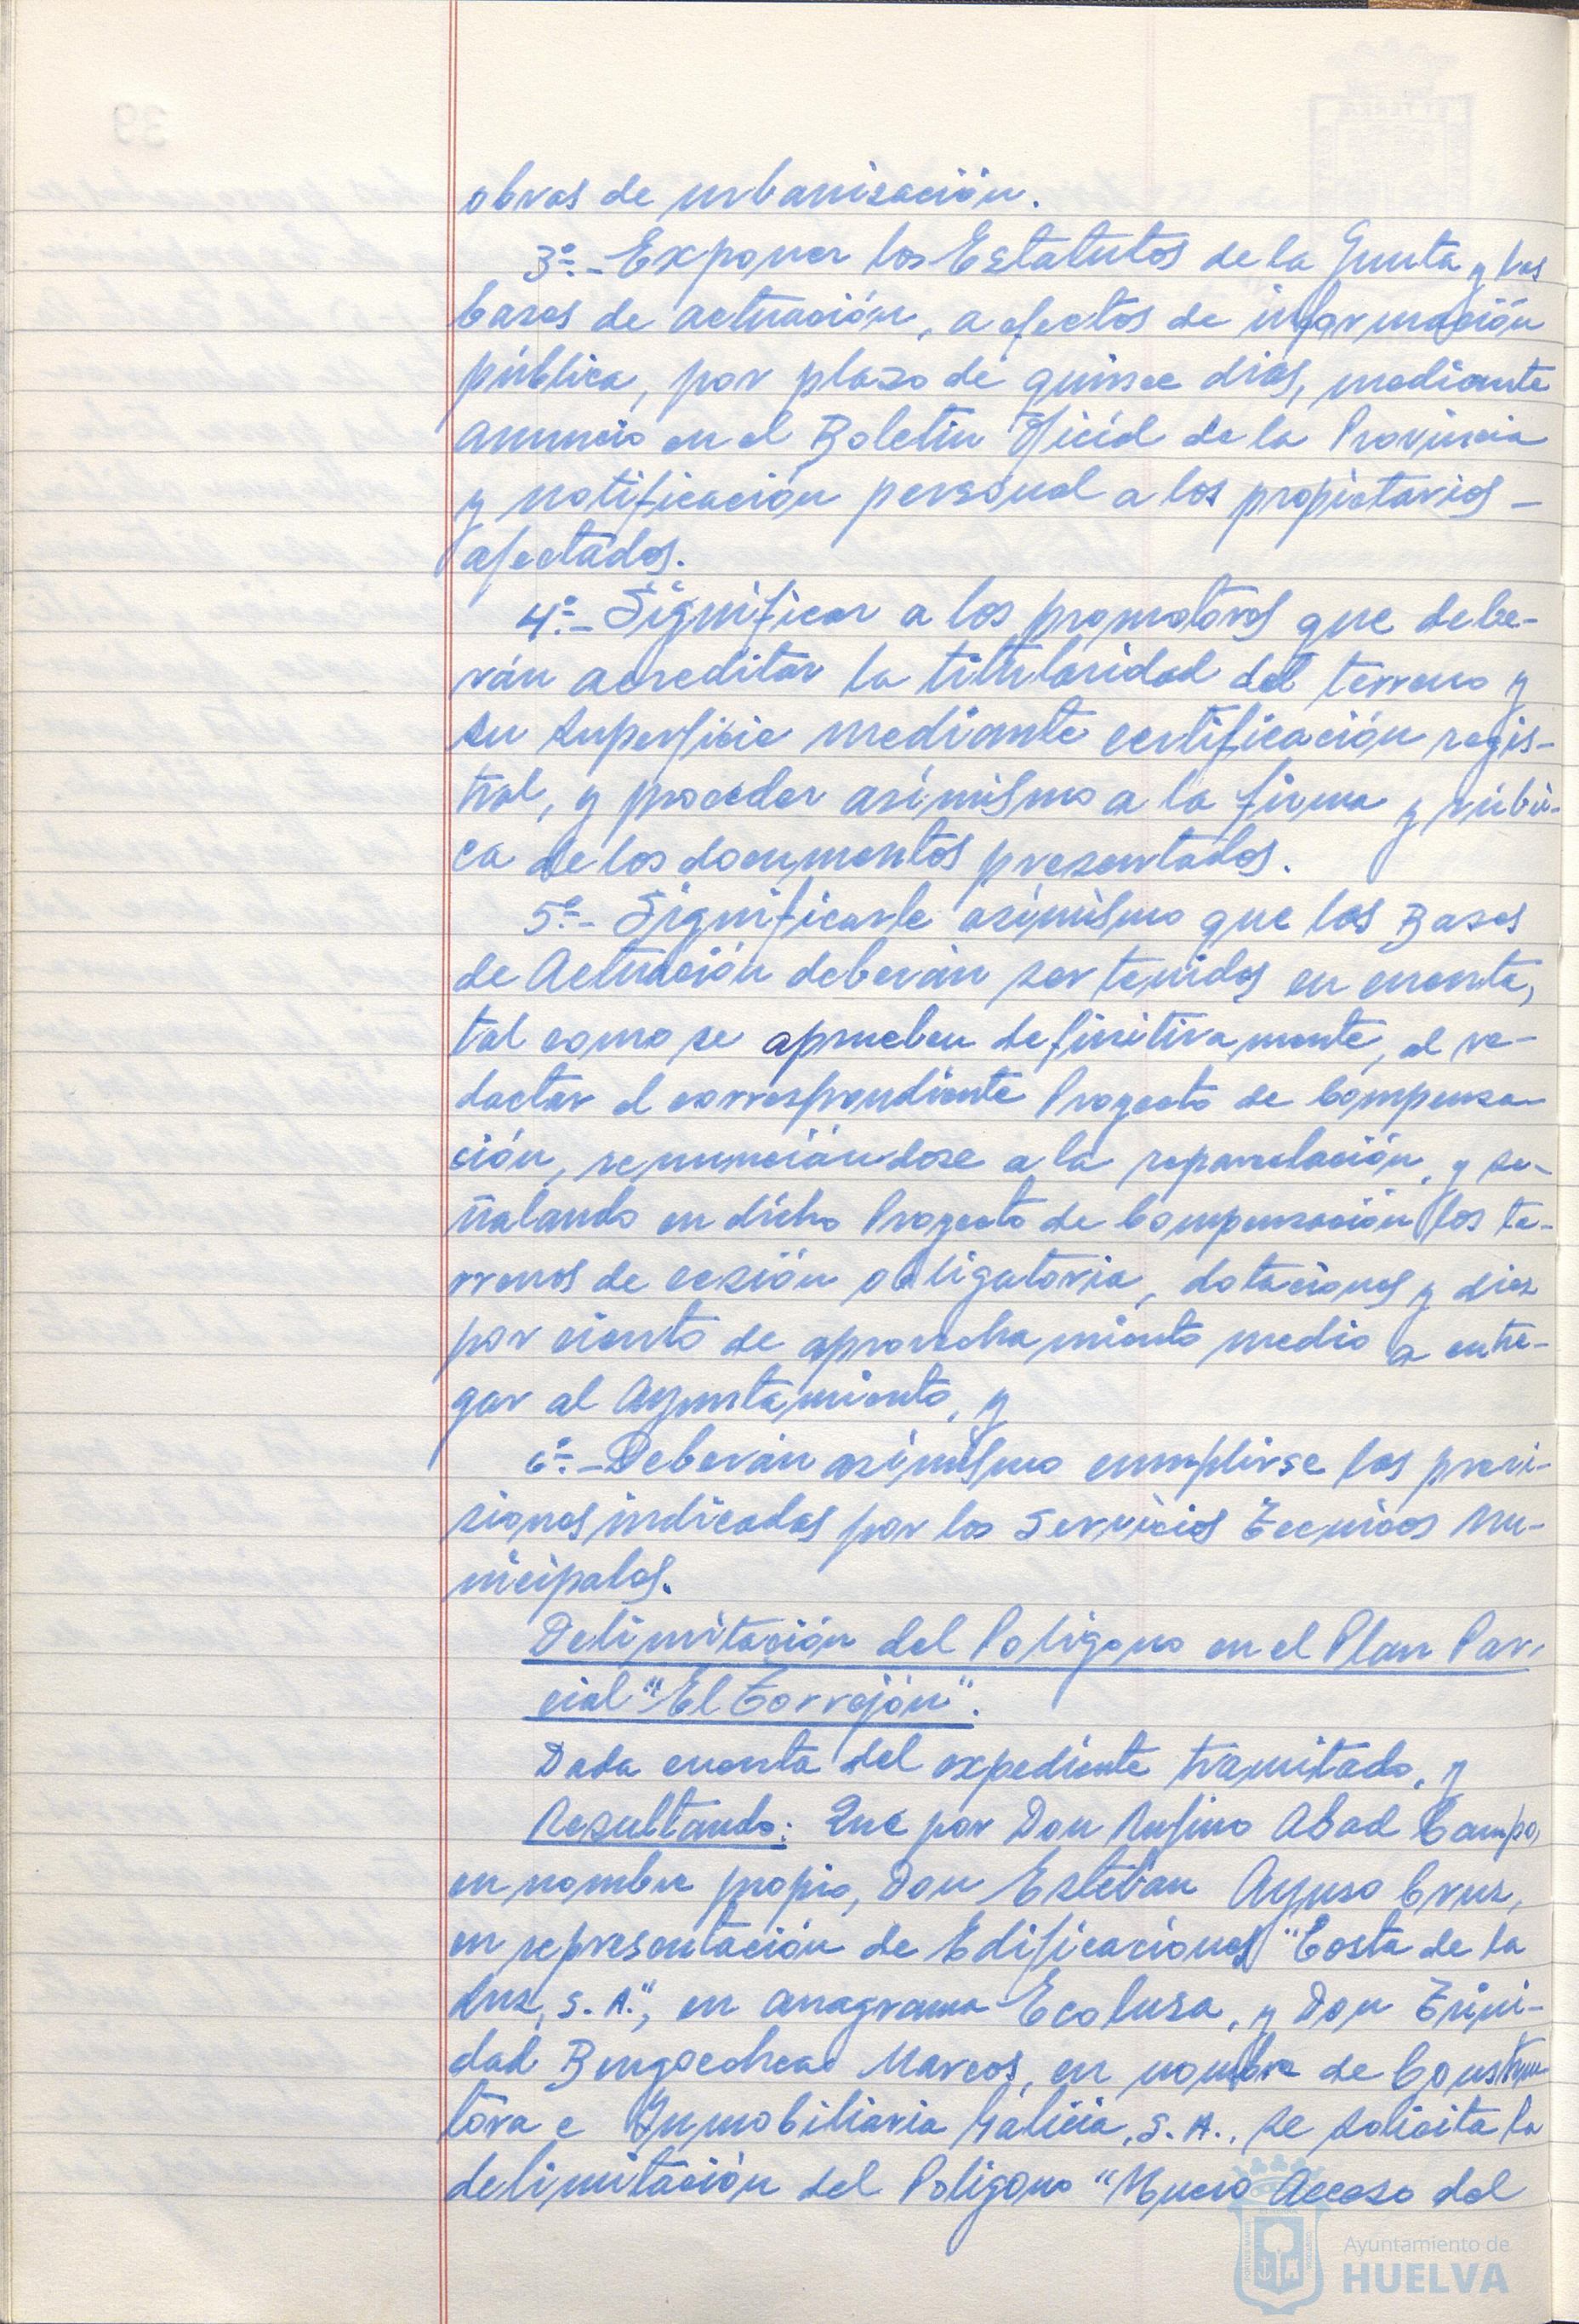 obras de urbanización.
3º.- Exponer los Estatutos de la Junta y las
bases de actuación, a efectos de información
pública, por plazo de quince dias, mediante
anuncio en el Boletin Oficial de la Provincia
y notificación personal a los propietarios -
afectados.
4º.- Significar a los promotores que debe-
rán acreditar la titularidad del terreno y
su superficie mediante certificación regis-
tral, y proceder asímismo a la firma y rúbri-
ca de los documentos presentados.
5º.- Significarle asímismo que las Bases
de Actuación deberán ser tenidas en cuenta,
tal como se aprueben definitivamente, al re-
dactar el correspondiente Proyecto de Compensa-
ción, renunciándose a la reparcelación, y se-
ñalando en dicho Proyecto de Compensación los te-
rrenos de cesión obligatoria, dotaciones y diez
por ciento de aprovechamiento medio a entre-
gar al Ayuntamiento, y
6º.- Deberán asímismo cumplirse las previ-
siones indicadas por los Servicios Técnicos Mu-
nicipales.
Delimitación del Poligono en el Plan Par-
cial "El Torrejón".
Dada cuenta del expediente tramitado, y
Resultando: Que por Don Rufino Abad Campo,
en nombre propio, Don Esteban Ayuso Cruz,
en representación de Edificaciones "Costa de la
Luz, S. A.", en anagrama Ecolusa, y Don Trini-
dad Bengoechea Marcos, en nombre de Construc-
tora e Inmobiliaria Galicia, S. A., se solicita la
delimitación del Poligono "Nuevo Acceso del
Ayuntamiento de
HUELVA
39